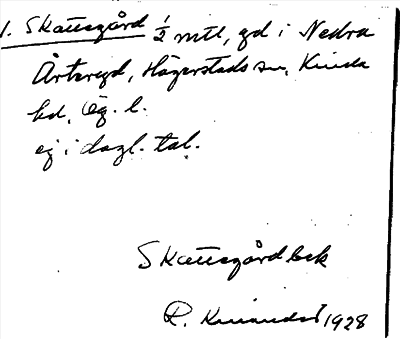 1. Skattegård 1/2 mtl, gd i Nedra
Årteryd, Hägerstads sn, Kinda
hd, Ög. l.
ej i dagl. tal.
Skattegårdbek
R. 1928